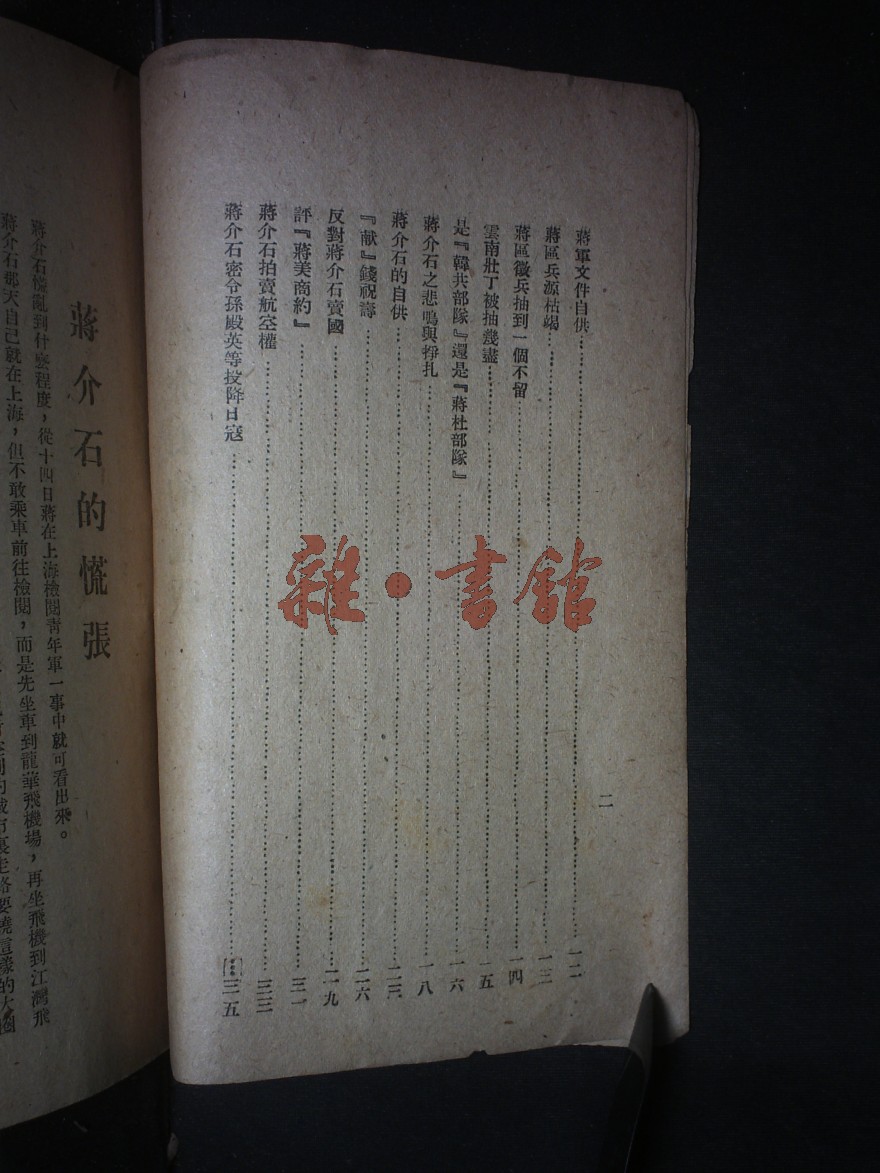 蔣軍文件自供……一二
蔣區兵源枯竭……一三
蔣區徵兵抽到一個不留……一四
雲南壯丁被抽幾盡……一五
是『韓共部隊』還是『蔣杜部隊』……一六
蔣介石之悲鳴與掙扎……一八
蔣介石的自供……二三
『献』錢祝壽……二六
反對蔣介石賣國……二九
評『蔣美商約』……三一
蔣介石拍賣航空權……三三
蔣介石密令孫殿英等投降日寇……三五
二
雜·書館
蔣介石的慌張
蔣介石慌亂到什麼程度，從十四日蔣在上海檢閱青年軍一事中就可看出來。
蔣介石那天自己就在上海，但不敢乘車前往檢閱，而是先坐車到龍華飛機場，再坐飛機到江灣飛
的城市裏走路要繞這樣的大圈